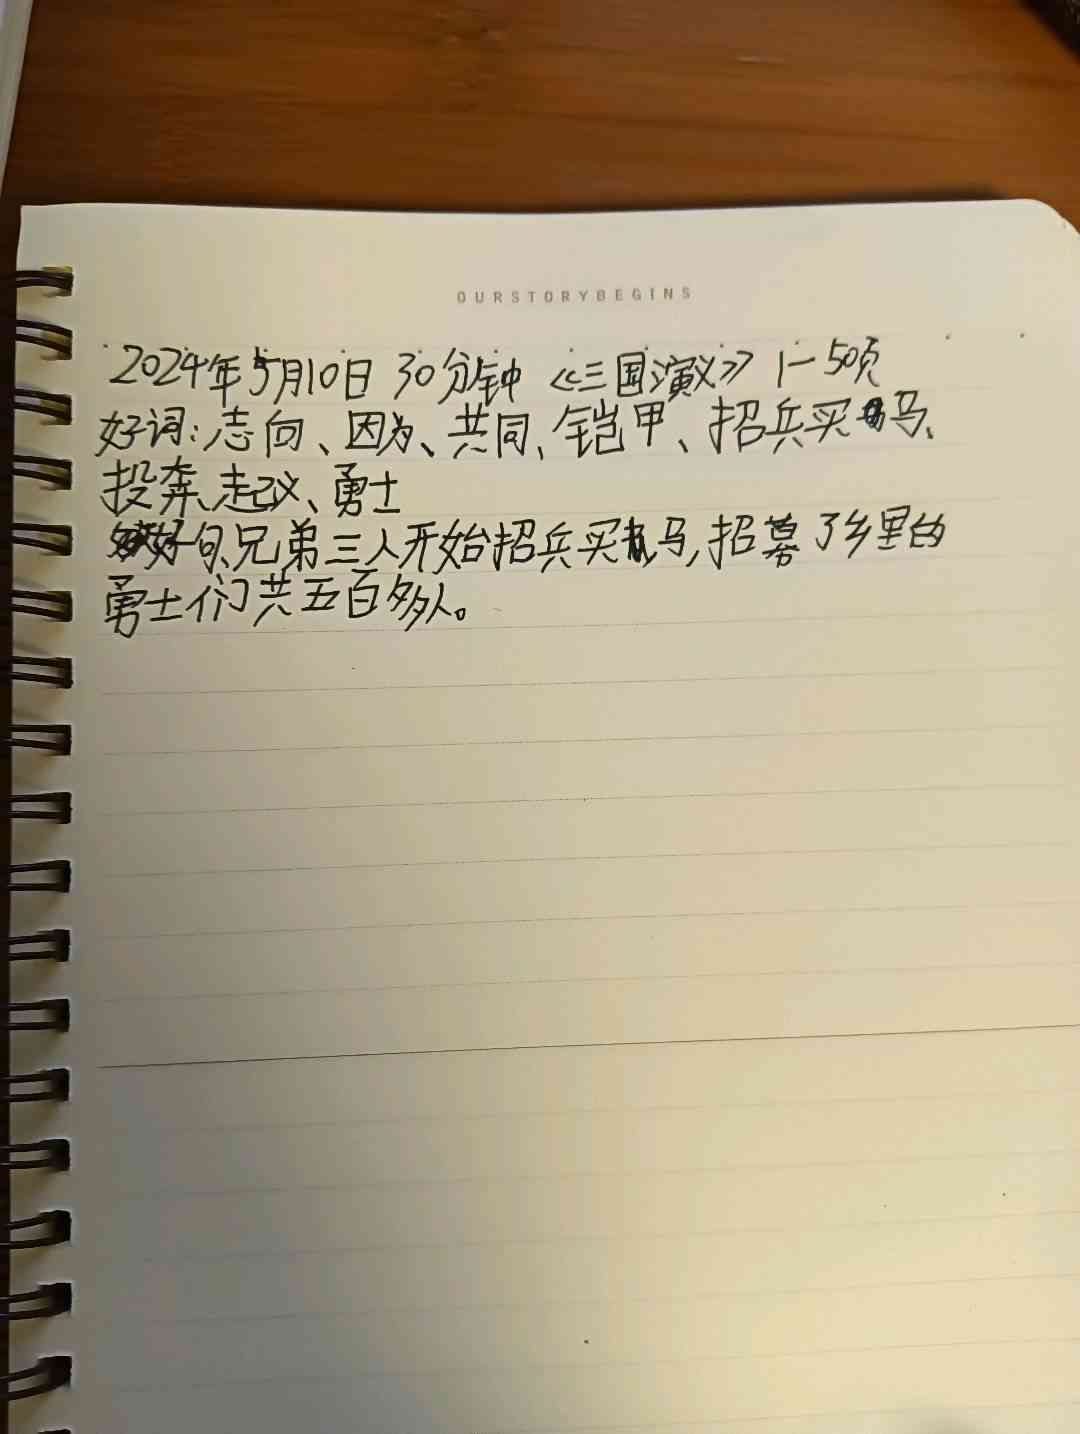 OURSTORYBEGINS
2024年5月10日 30分钟 《三国演义》 1-50页
好词:志向、因为、共同、铠甲、招兵买马、
投奔、起议、勇士
好句、兄弟三人开始招兵买马,招募了乡里的
勇士们共五百多人。